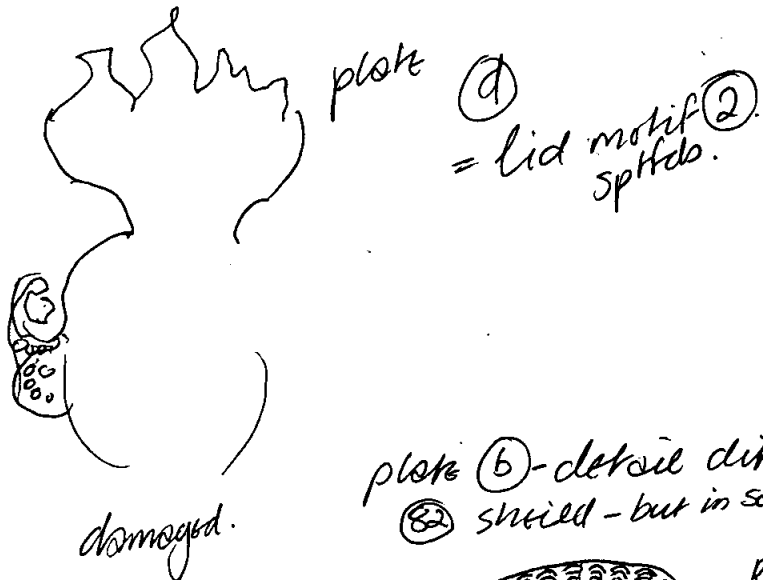 plate (d)
= lid motif (2).
damaged.
plate (b) - detail
(82) sheild - but in